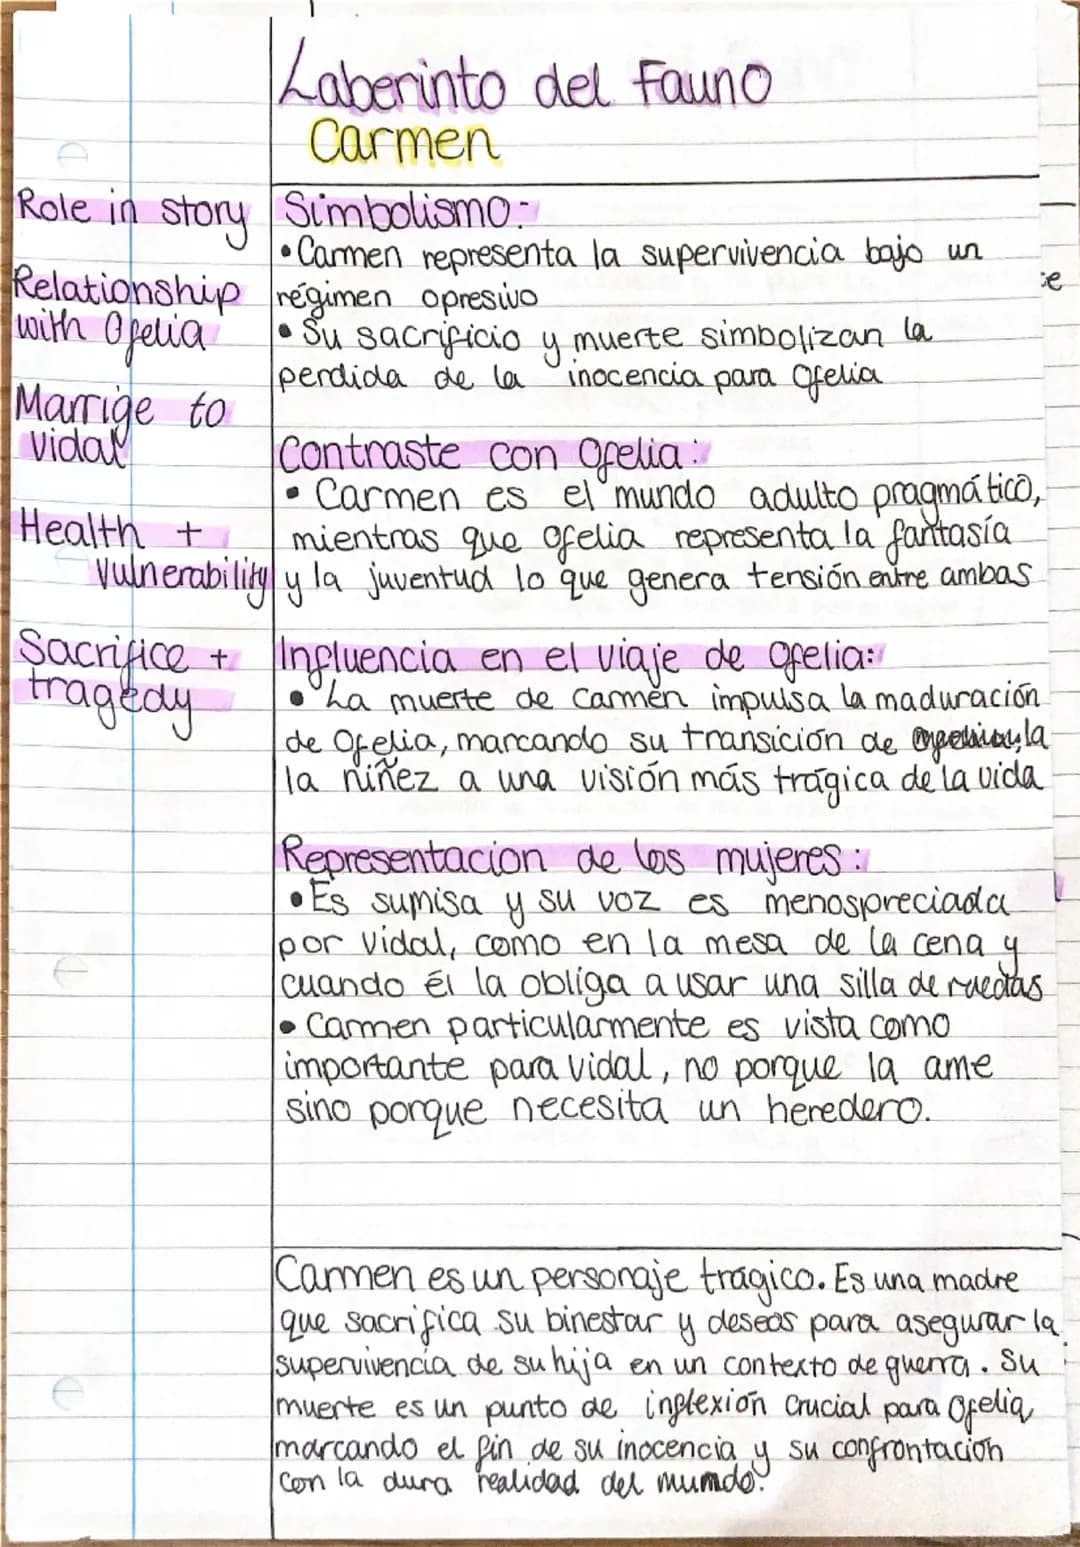 Laberinto del Fauno
Carmen
Role in story
Relationship
with Ofelia
Marrige to
vidal
Health +
Vulnerability
Sacrifice +
tragedy
Simbolismo:
•Carmen representa la supervivencia bajo un
régimen opresivo
• Su sacrificio y muerte simbolizan la
perdida de la inocencia para Ofelia
Contraste con Ofelia:
• Carmen es el mundo adulto pragmático,
mientras que Ofelia representa la fantasía
y la juventud lo que genera tensión entre ambas
Influencia en el viaje de Ofelia:
• La muerte de Carmen impulsa la maduración
de Ofelia, marcando su transición de la
la niñez a una visión más trágica de la vida
Representacion de los mujeres:
•Es sumisa y su voz es menospreciada
por Vidal, como en la mesa de la cena y
cuando él la obliga a usar una silla de ruedas
• Carmen particularmente es vista como
importante para Vidal, no porque la ame
sino porque necesita un heredero.
Carmen es un personaje trágico. Es una madre
que sacrifica su binestar y deseos para asegurar la
supervivencia de su hija en un contexto de guerra. Su
muerte es un punto de inflexión crucial para Ofelia,
marcando el fin de su inocencia y su confrontación
con la dura realidad del mundo.